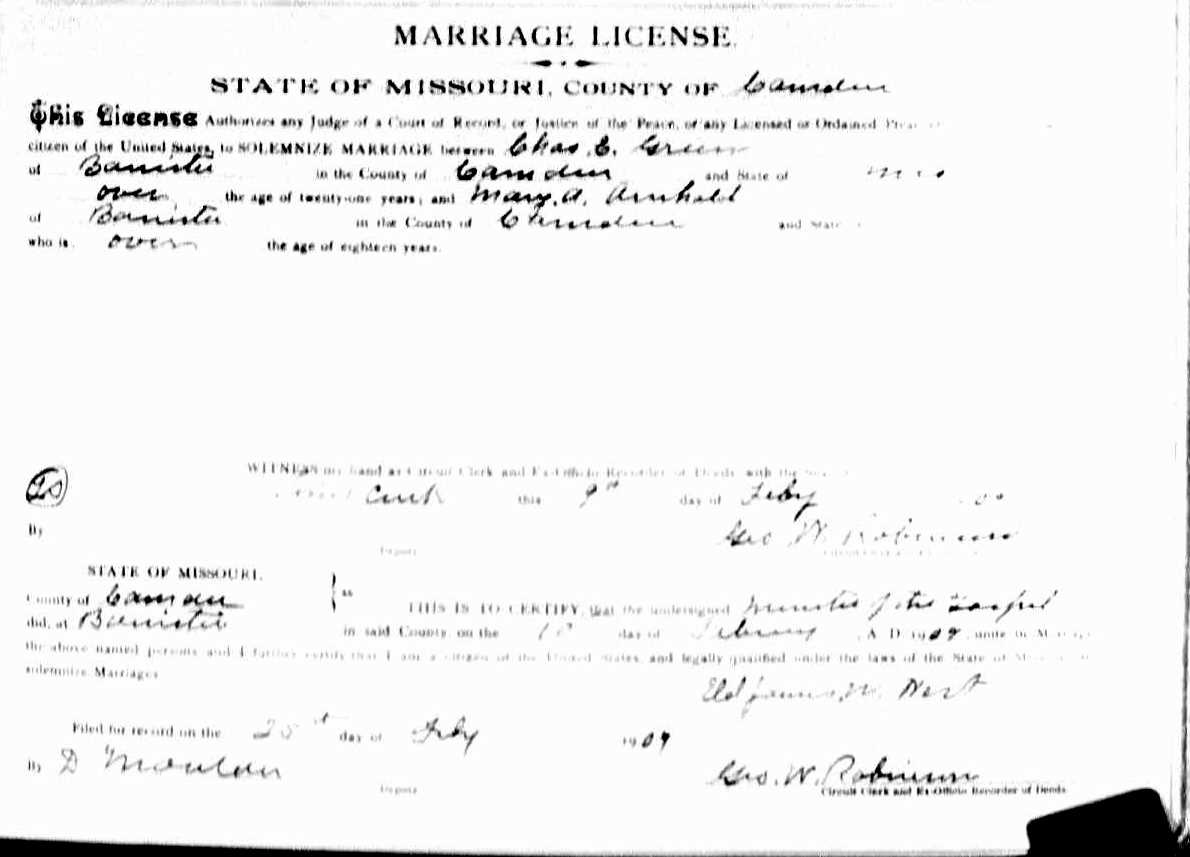 MARRIAGE LICENSE.
STATE OF MISSOURI, COUNTY OF Camden
This License Authorizes any Judge of a Court of Record, or Justice of the Peace, or any Licensed or Ordained
citizen of the United States, to SOLEMNIZE MARRIAGE between Chas. E. Green
of Banister in the County of Camden and State of Mo
over the age of twenty-one years; and Mary A. Arnhold
of Banister in the County of Camden and State
who is over the age of eighteen years.
WITNESS my hand as Circuit Clerk and Ex-Officio Recorder of Deeds with the
this 9th day of Feby
By Geo W. Robinson
Deputy
STATE OF MISSOURI,
County of Camden ss
THIS IS TO CERTIFY, that the undersigned Minister of the Gospel
did, at Banister in said County, on the day of February A. D. 1909 unite in Marriage
the above named persons and I further certify that I am a citizen of the United States, and legally qualified under the laws of the State of
solemnize Marriages
Eld James W. West
Filed for record on the 25th day of Feby 1909
By D Moulder Geo. W. Robinson
Deputy Circuit Clerk and Ex-Officio Recorder of Deeds